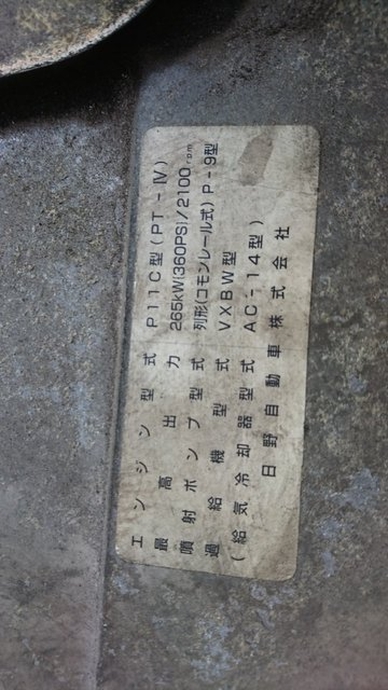 エンジン型式 P11C型(PT-Ⅳ)
最高出力 265kW(360PS)/2100rpm
噴射ポンプ型式 列形(コモンレール式)P-9型
過給機型式 VXBW型
(給気冷却器型式 AC-14型)
日野自動車株式会社